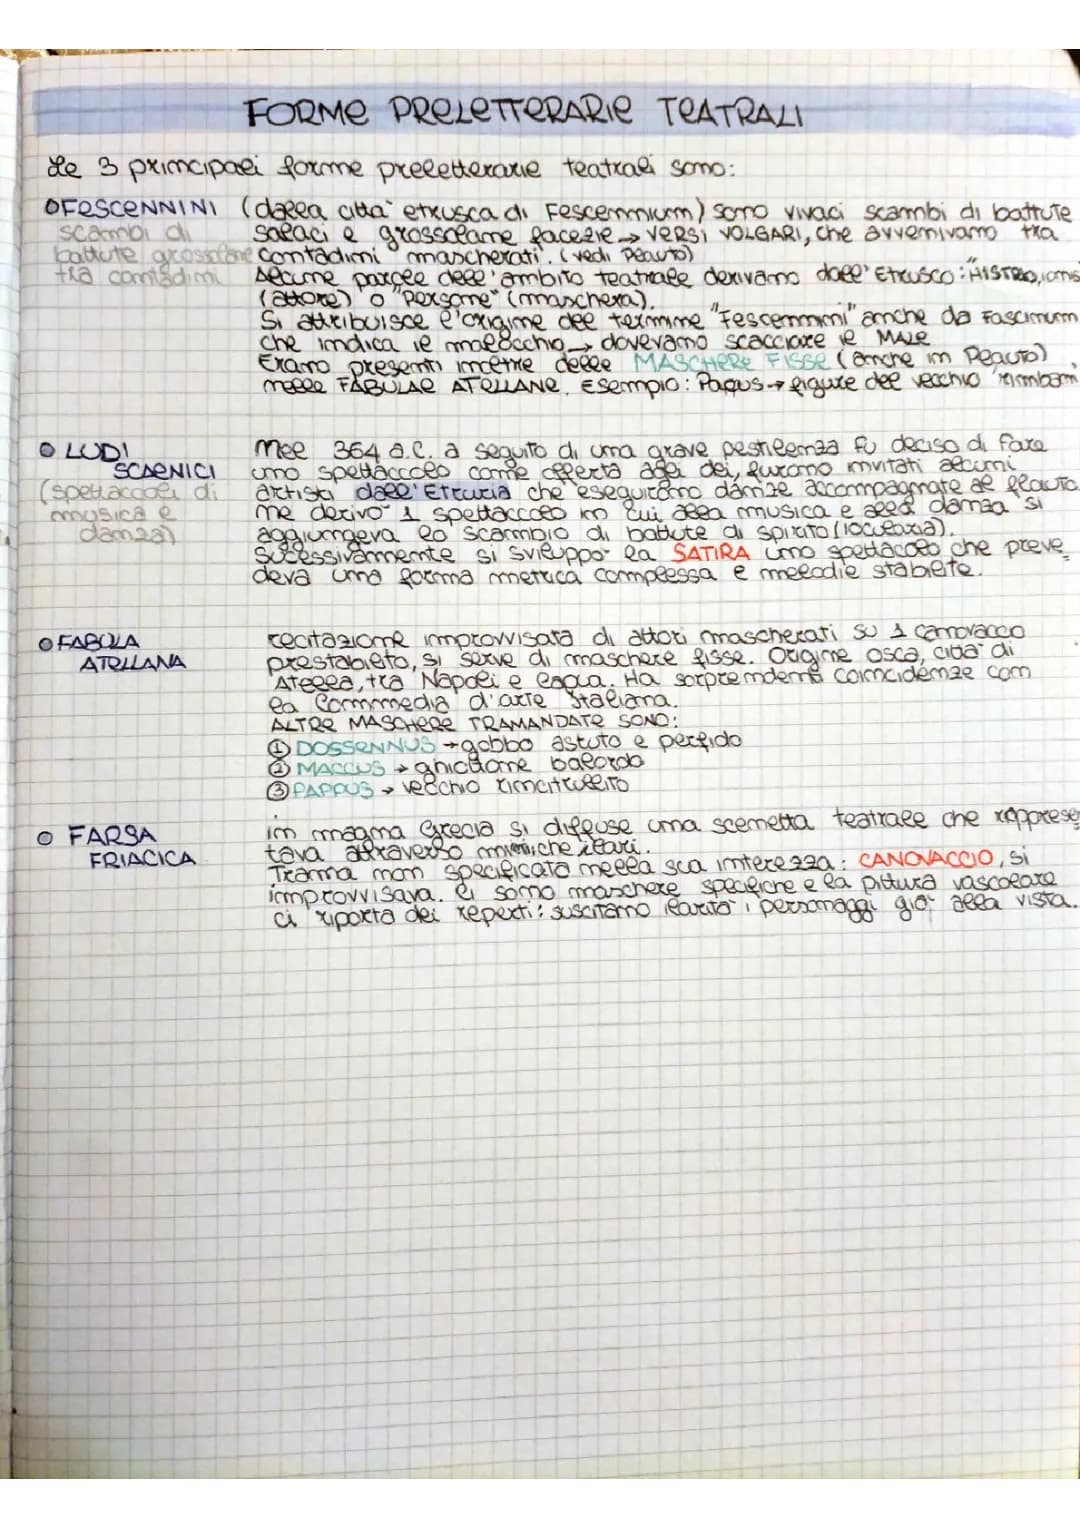 FORME PRELETTERARIE TEATRALI
Le 3 principali forme preletterarie teatrali sono:
FESCENNINI (dalla città etrusca di Fescennium) sono vivaci scambi di battute
scambi di salaci e grossolane facezie → VERSI VOLGARI, che avvenivano tra
battute grossolane contadini mascherati. (vedi Plauto)
tra contadini Alcune parole dell'ambito teatrale derivano dall'Etrusco: HISTRIO, ionis
(attore) o "Persone" (maschera).
Si attribuisce l'origine del termine "Fescennini" anche da Fascinum
che indica il malocchio → dovevano scacciare il MALE
Erano presenti inoltre delle MASCHERE FISSE (anche in Plauto)
nelle FABULAE ATELLANE. Esempio: Papus → figure del vecchio rimbam
LUDI Nel 364 a.C. a seguito di una grave pestilenza fu deciso di fare
SCAENICI uno spettacolo come offerta agli dei, furono invitati alcuni
(spettacoli di artisti dall'Etruria che eseguirono danze accompagnate al flauto.
musica e ne derivò 1 spettacolo in cui alla musica e alla danza si
danza) aggiungeva lo scambio di battute di spirito (iocularia).
Sucessivamente si sviluppò la SATIRA uno spettacolo che preve_
deva una forma metrica complessa e melodie stabilite.
FABULA recitazione improvvisata di attori mascherati su 1 canovacco
ATELLANA prestabilito, si serve di maschere fisse. Origine osca, città di
Atella, tra Napoli e Capua. Ha sorprendenti coincidenze con
la Commedia d'arte Italiana.
ALTRE MASCHERE TRAMANDATE SONO:
① DOSSENNUS → gobbo astuto e perfido
② MACCUS → ghiottone balordo
③ PAPPUS → vecchio rimcitrullito
FARSA in magna Grecia si diffuse una scenetta teatrale che rappresen
FRIACICA tava attraverso mimiche ilari.
Trama non specificata nella sua interezza: CANOVACCIO, si
improvvisava. Ci sono maschere specifiche e la pittura vascolare
ci riporta dei reperti: suscitano ilarità i personaggi già alla vista.